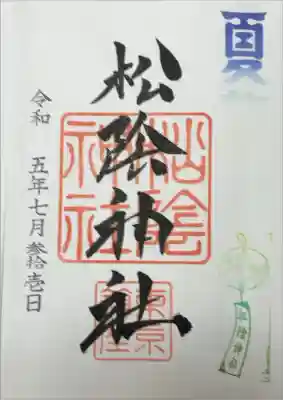 夏
松陰神社
松陰神社
東京
松陰神社
令和 五年七月参拾壱日